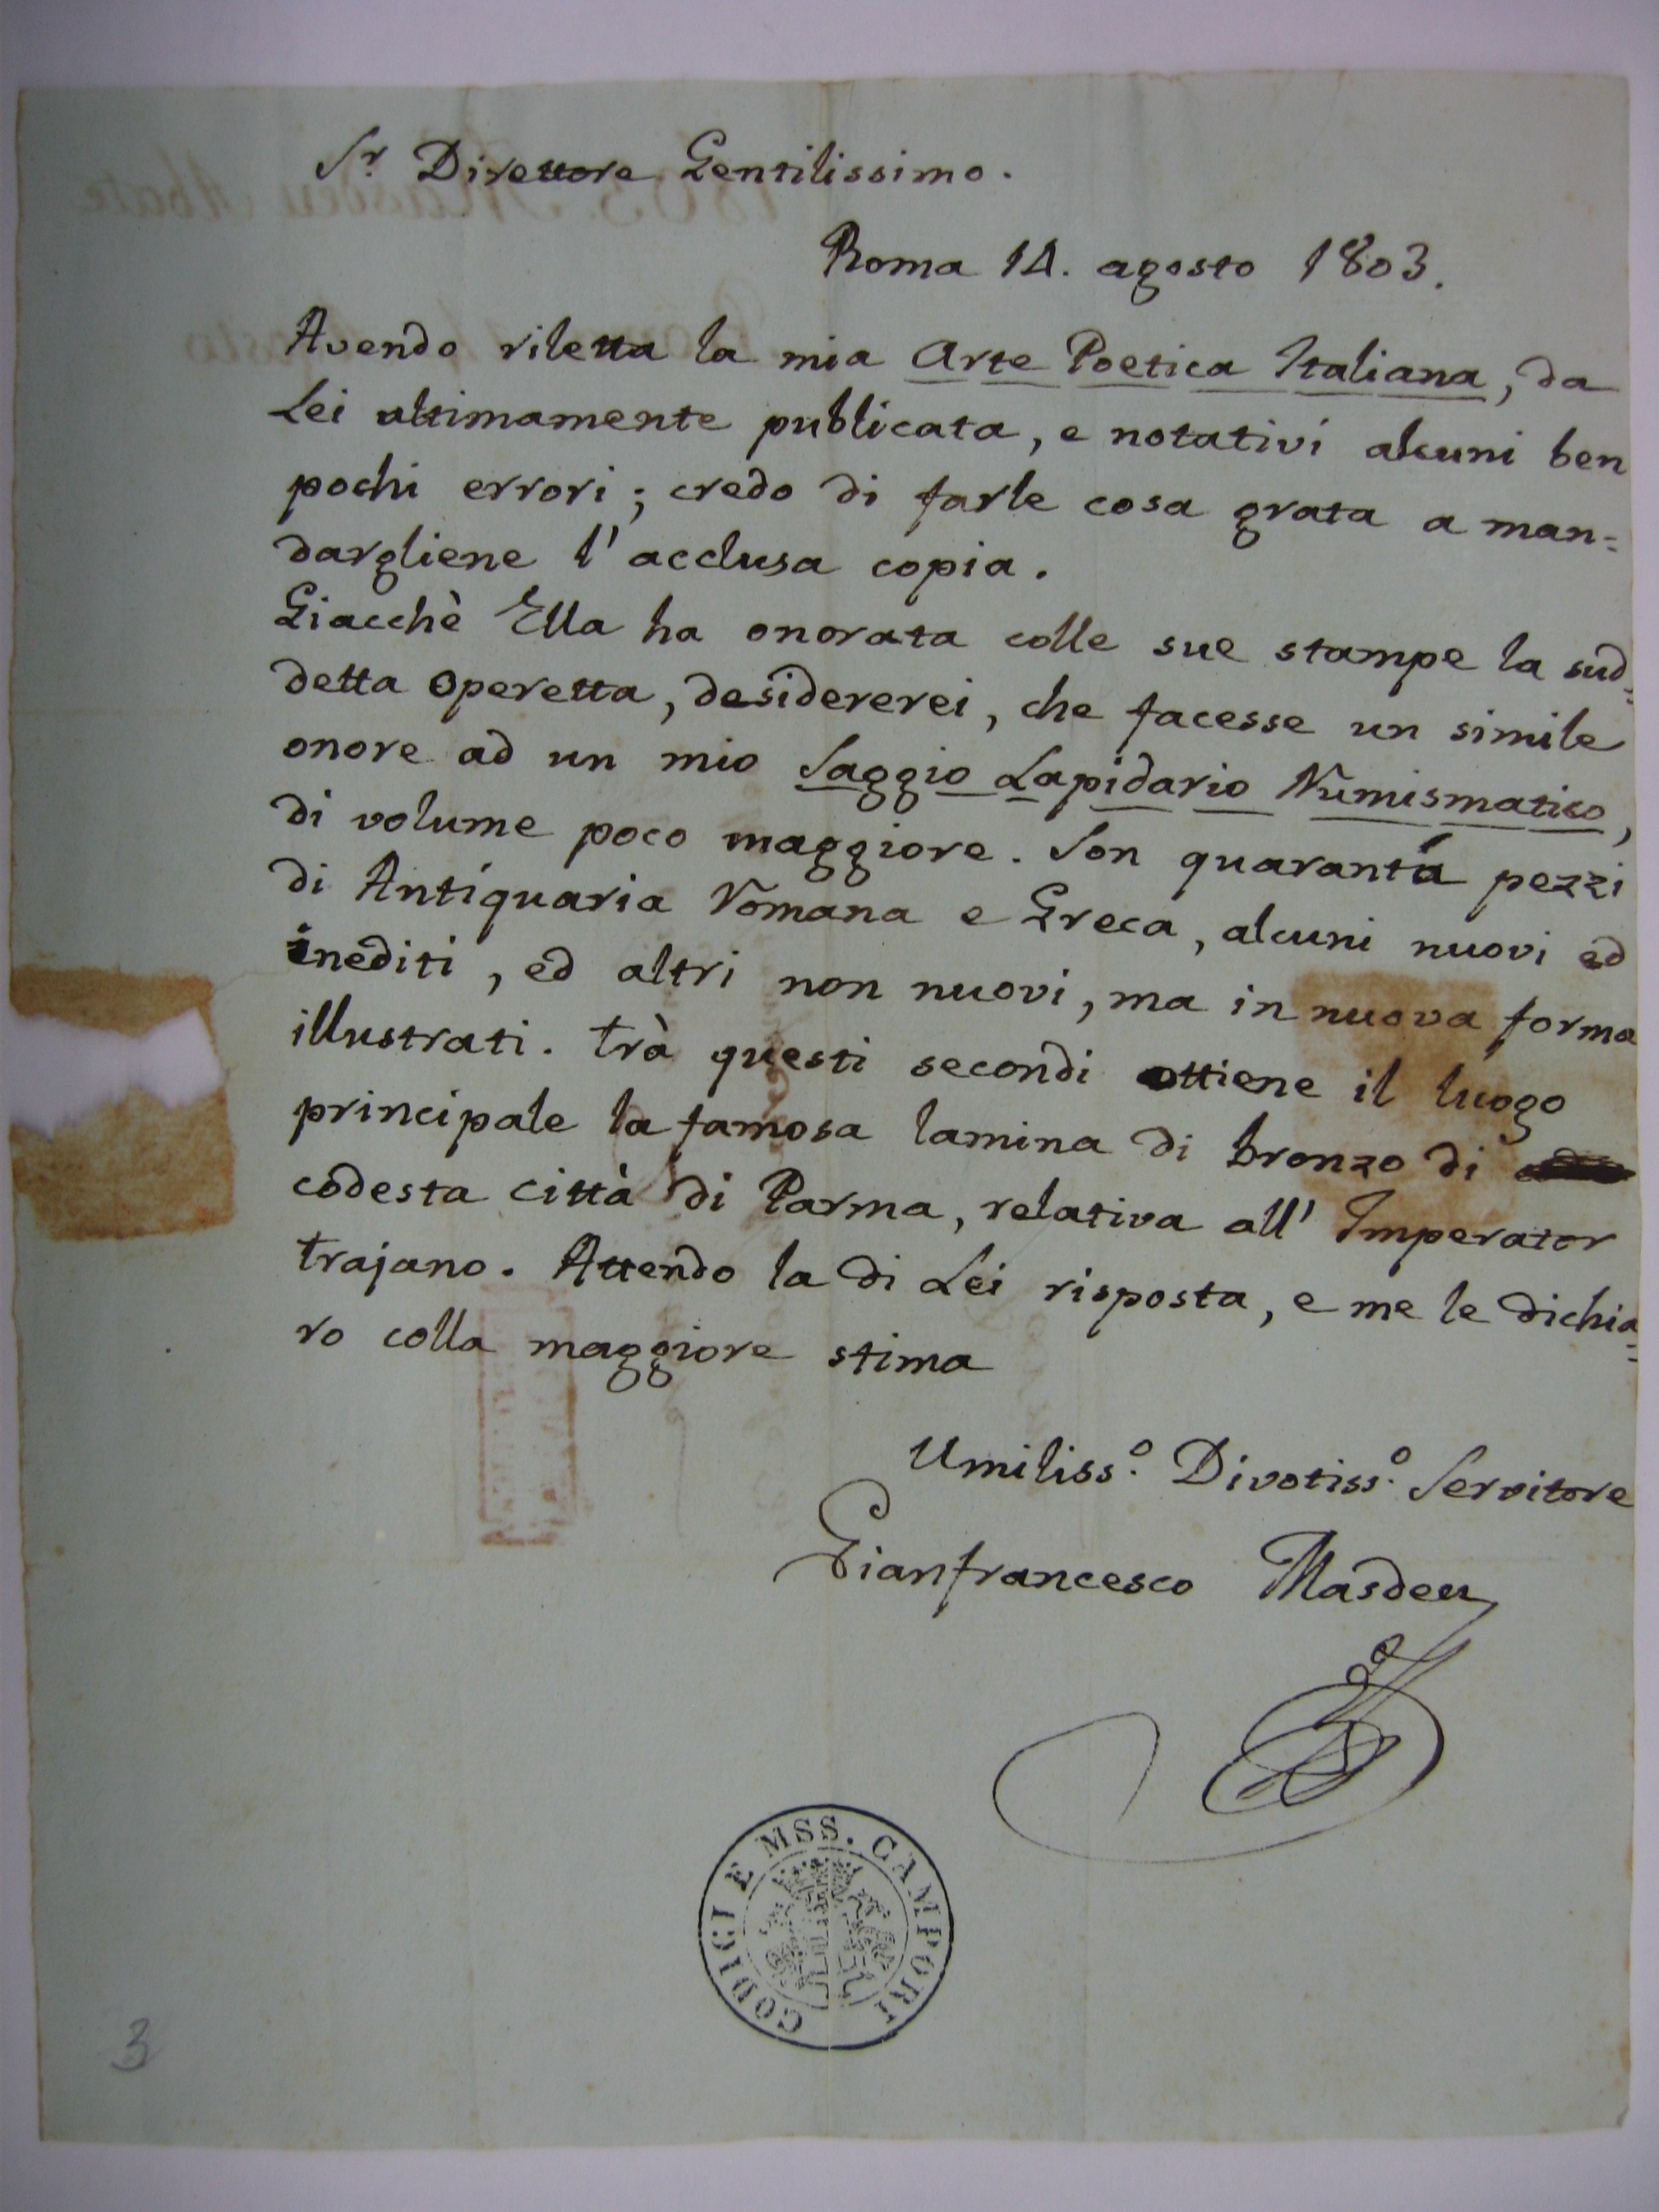 Sr. Direttore Gentilissimo.
Roma 14. agosto 1803.
Avendo riletta la mia Arte Poetica Italiana, da
Lei ultimamente publicata, e notativi alcuni ben
pochi errori; credo di farle cosa grata a man=
dargliene l'acclusa copia.
Giacchè Ella ha onorata colle sue stampe la sud=
detta operetta, desidererei, che facesse un simile
onore ad un mio Saggio Lapidario Numismatico,
di volume poco maggiore. Son quaranta pezzi
di Antiquaria Romana e Greca, alcuni nuovi ed
inediti, ed altri non nuovi, ma in nuova forma
illustrati. Trà questi secondi ottiene il luogo
principale la famosa lamina di bronzo di
codesta città di Parma, relativa all'Imperator
Trajano. Attendo la di Lei risposta, e me le dichia=
ro colla maggiore stima
Umiliss.º Divotiss.º Servitore
Gianfrancesco Masdeu
CODICI E MSS. CAMPORI
3